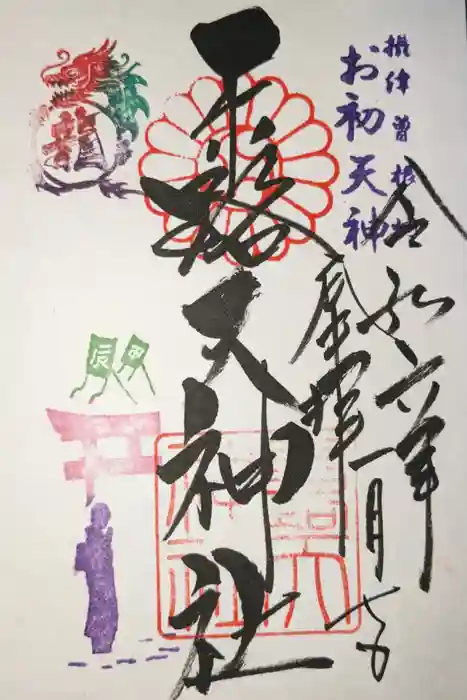 摂津曽根崎
お初天神
令和六年一月七日
奉拝
露天神社
龍
辰